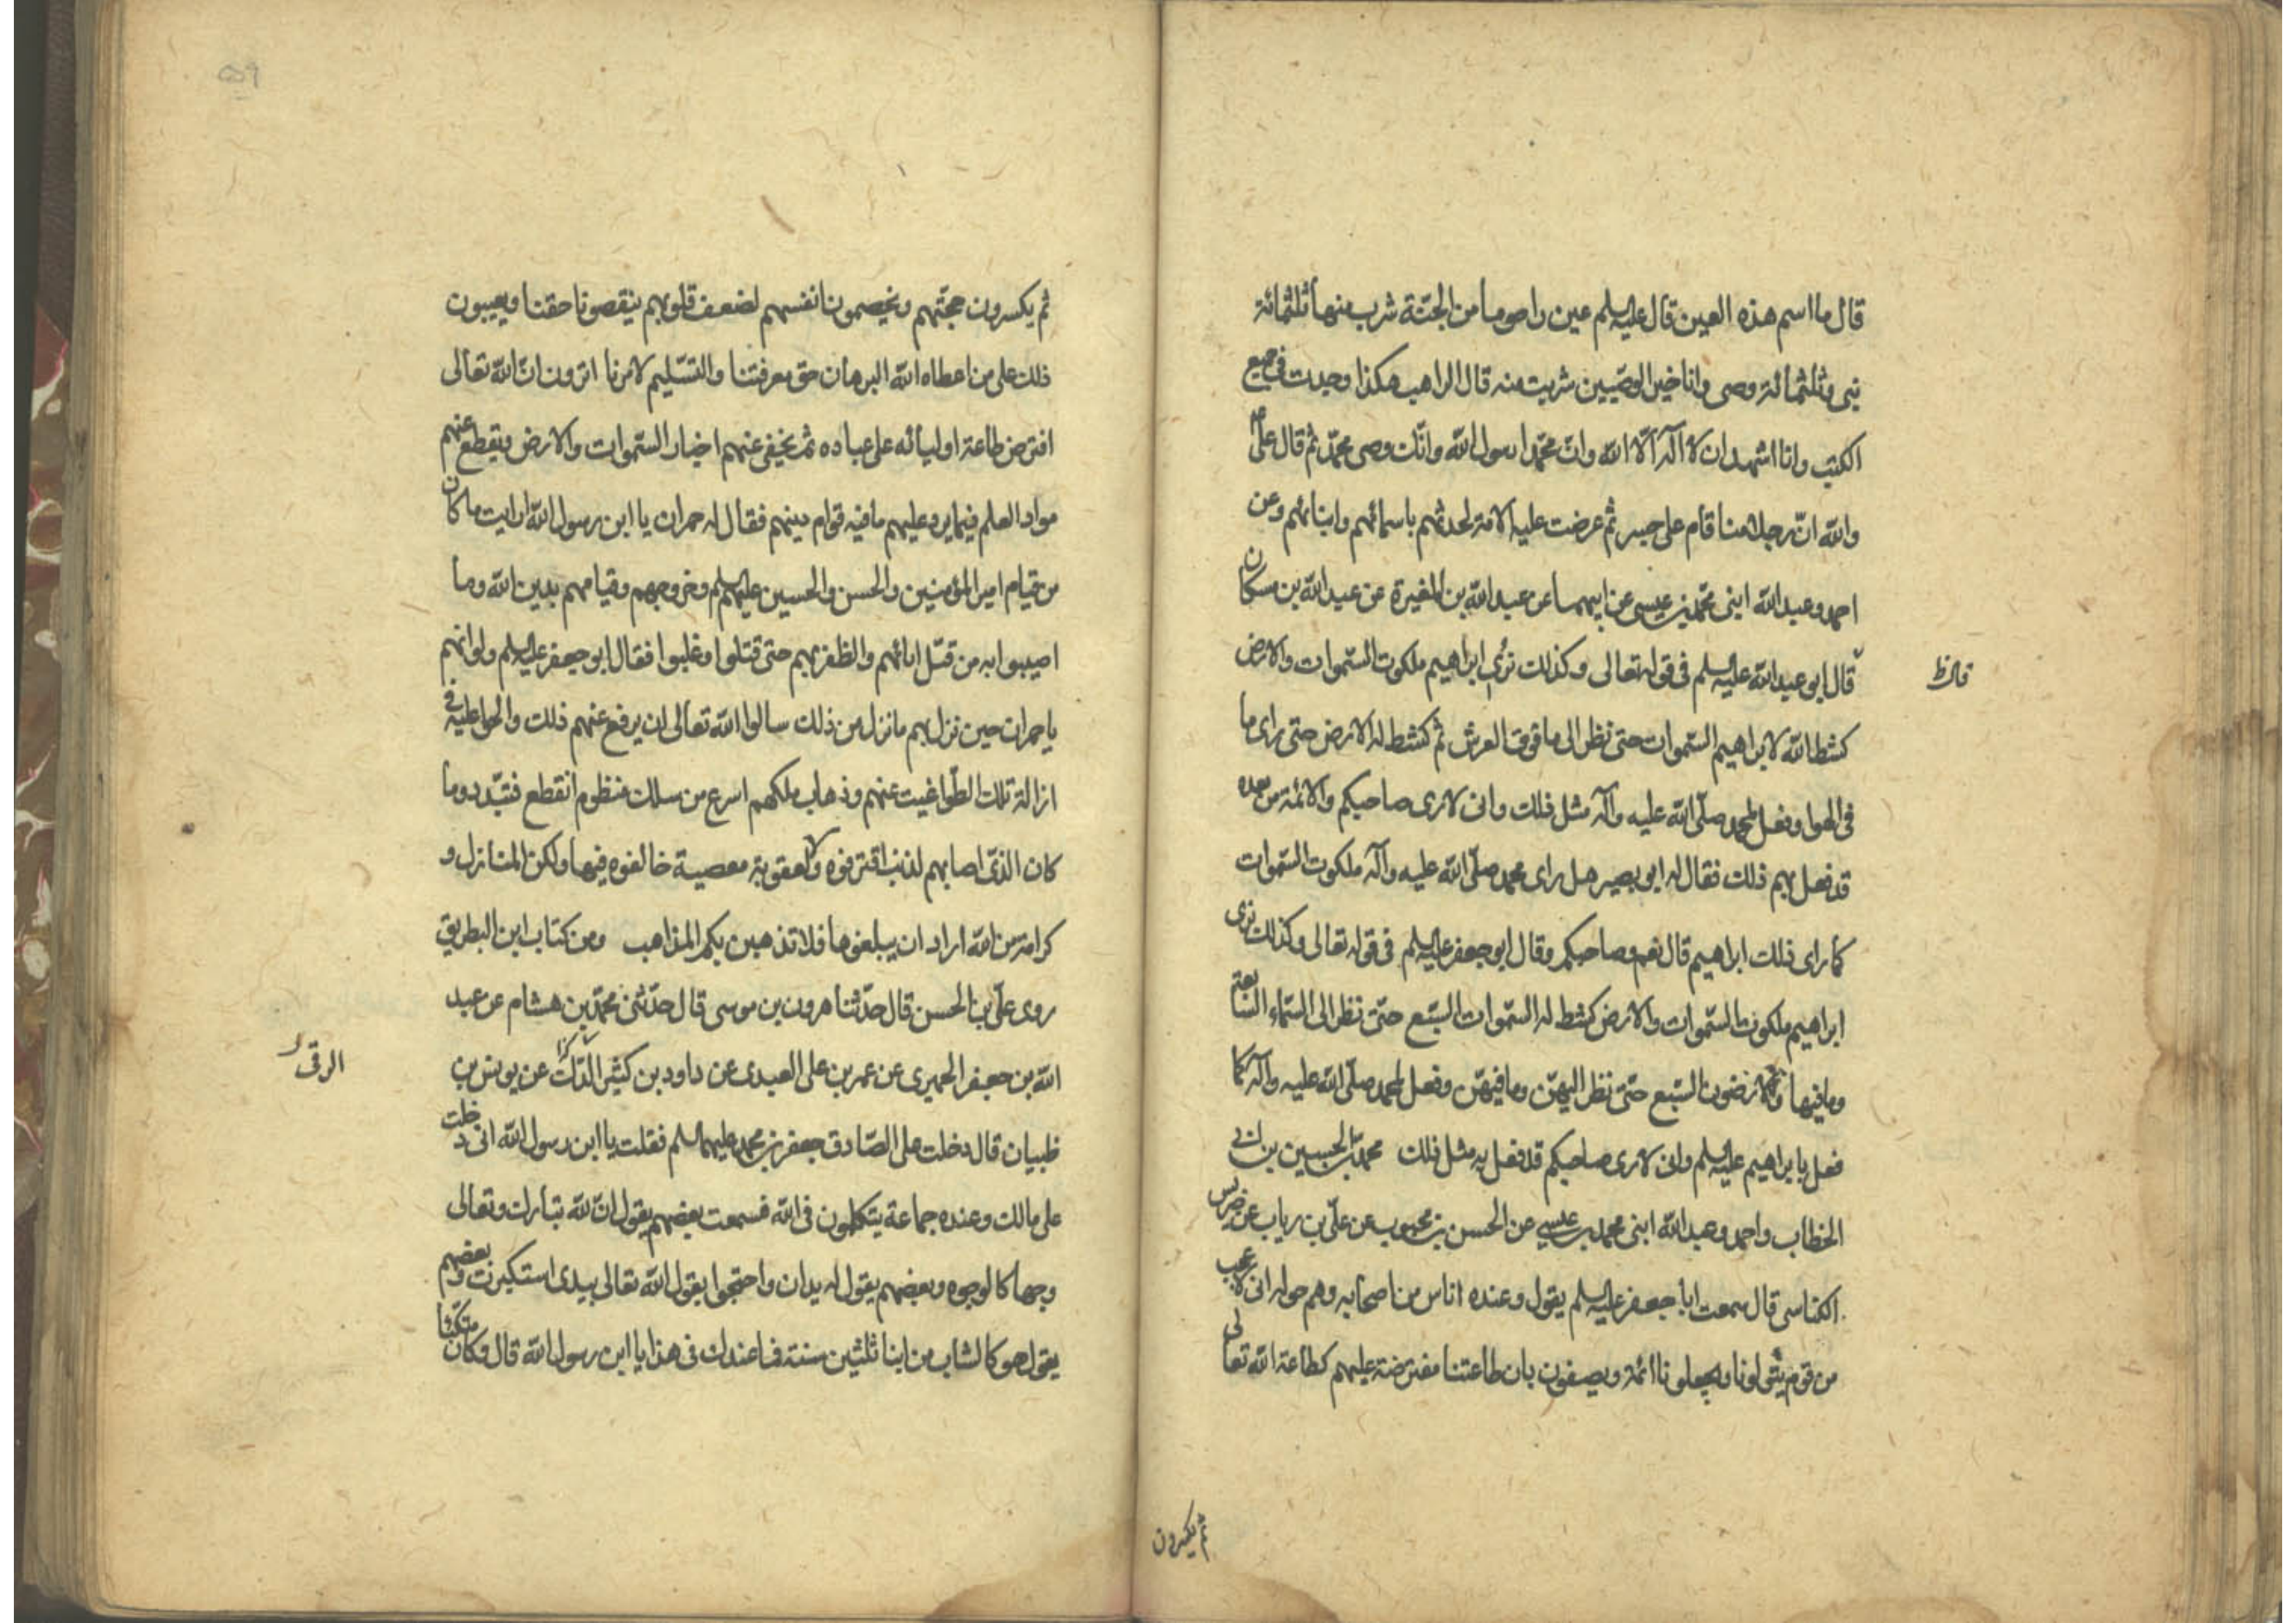 قال ما اسم هذه العين قال عليه السلم عين راحوما من الجنة شرب منها ثلثمائة
نبى وثلثمائة وصى وانا خير الوصيين شربت منه قال الراهب هكذا وجدت فى جميع
الكتب وانا اشهد ان لا اله الا الله وان محمدا رسول الله وانك وصى محمد ثم قال على ع
والله ان رجلا منا قام على جسر ثم عرضت عليه الامة لحدثهم باسمائهم وابنائهم وعن
احمد وعبد الله ابنى محمد بن عيسى عن ابيهما عن عبد الله بن المغيرة عن عبد الله بن مسكان
قال ابو عبد الله عليه السلم فى قوله تعالى وكذلك نرى ابراهيم ملكوت السموات والارض
قال ظ
كشط الله لابراهيم السموات حتى نظر الى ما فوق العرش ثم كشط له الارض حتى راى ما
فى الهوا وفعل لمحمد صلى الله عليه وآله مثل ذلك وانى لارى صاحبكم والائمة من بعده
قد فعل بهم ذلك فقال له ابو بصير هل راى محمد صلى الله عليه وآله ملكوت السموات
كما راى ذلك ابراهيم قال نعم وصاحبكم وقال ابو جعفر عليه السلم فى قوله تعالى وكذلك نرى
ابراهيم ملكوت السموات والارض كشط له السموات السبع حتى نظر الى السماء السابعة
وما فيها والارضون السبع حتى نظر اليهن وما فيهن وفعل لمحمد صلى الله عليه وآله كما
فعل بابراهيم عليه السلم وانى لارى صاحبكم قد فعل به مثل ذلك محمد بن الحسين بن ابى
الخطاب واحمد وعبد الله ابنى محمد بن عيسى عن الحسن بن محبوب عن على بن رياب عن ضريس
الكناسى قال سمعت ابا جعفر عليه السلم يقول وعنده اناس من اصحابه وهم حوله انى لاعجب
من قوم يتولونا ويجعلونا ائمة ويصفون بان طاعتنا مفترضة عليهم كطاعة الله تعالى
ثم يكسرون
ثم يكسرون حجتهم ويخصمون انفسهم لضعف قلوبهم ينقصونا حقنا ويعيبون
ذلك على من اعطاه الله البرهان حق معرفتنا والتسليم لامرنا اترون ان الله تعالى
افترض طاعة اوليائه على عباده ثم يخفى عنهم اخبار السموات والارض ويقطع عنهم
مواد العلم فيما يرد عليهم ما فيه قوام دينهم فقال له حمران يا ابن رسول الله ارايت ما كان
من قيام امير المؤمنين والحسن والحسين عليهم السلم وخروجهم وقيامهم بدين الله وما
اصيبوا به من قتل اباءهم والظفر بهم حتى قتلوا وغلبوا فقال ابو جعفر عليه السلم ولو انهم
يا حمران حين نزل بهم ما نزل من ذلك سالوا الله تعالى ان يرفع عنهم ذلك والحوا عليه فى
ازالة تلك الطواغيت عنهم وذهاب ملكهم اسرع من سلك منظوم انقطع فتبدد وما
كان الذى اصابهم لذنب اقترفوه ولا لعقوبة معصية خالفوه فيها ولكن المنازل و
كرامة من الله اراد ان يبلغوها فلا تذهبن بكم المذاهب ومن كتاب ابن البطريق
روى على بن الحسن قال حدثنا هرون بن موسى قال حدثنى محمد بن هشام عن عبد
الله بن جعفر الحميرى عن عمر بن على العبدى عن داود بن كثير عن يونس بن
الرقى
ظبيان قال دخلت على الصادق جعفر بن محمد عليهما السلم فقلت يا ابن رسول الله انى دخلت
على مالك وعنده جماعة يتكلمون فى الله فسمعت بعضهم يقول ان لله تبارك وتعالى
وجها كالوجوه وبعضهم يقول له يدان واحتجوا بقول الله تعالى بيدى استكبرت وبعضهم
يقول هو كالشاب من ابناء ثلثين سنة فما عندك فى هذا يا ابن رسول الله قال وكان متكئا